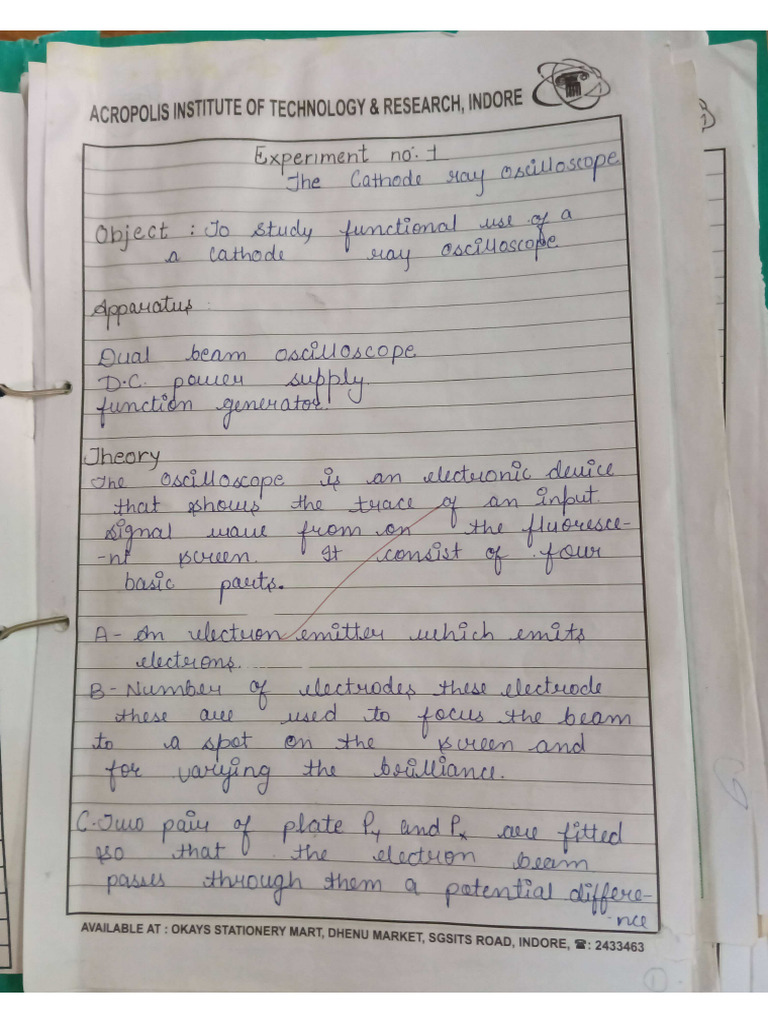 ACROPOLIS INSTITUTE OF TECHNOLOGY & RESEARCH, INDORE
Experiment no: 1
The Cathode ray oscilloscope
Object : To study functional use of a
a cathode ray oscilloscope
Apparatus :
Dual beam oscilloscope
D.C. power supply
function generator.
Theory
The oscilloscope is an electronic device
that shows the trace of an input
signal wave from on the fluoresce-
-nt screen. It consist of four
basic parts.
A- An electron emitter which emits
electrons.
B- Number of electrodes these electrode
these are used to focus the beam
to a spot on the screen and
for varying the brilliance.
C. Two pair of plate Py and Px are fitted
so that the electron beam
passes through them a potential differe-
nce
AVAILABLE AT : OKAYS STATIONERY MART, DHENU MARKET, SGSITS ROAD, INDORE, ☎: 2433463
1